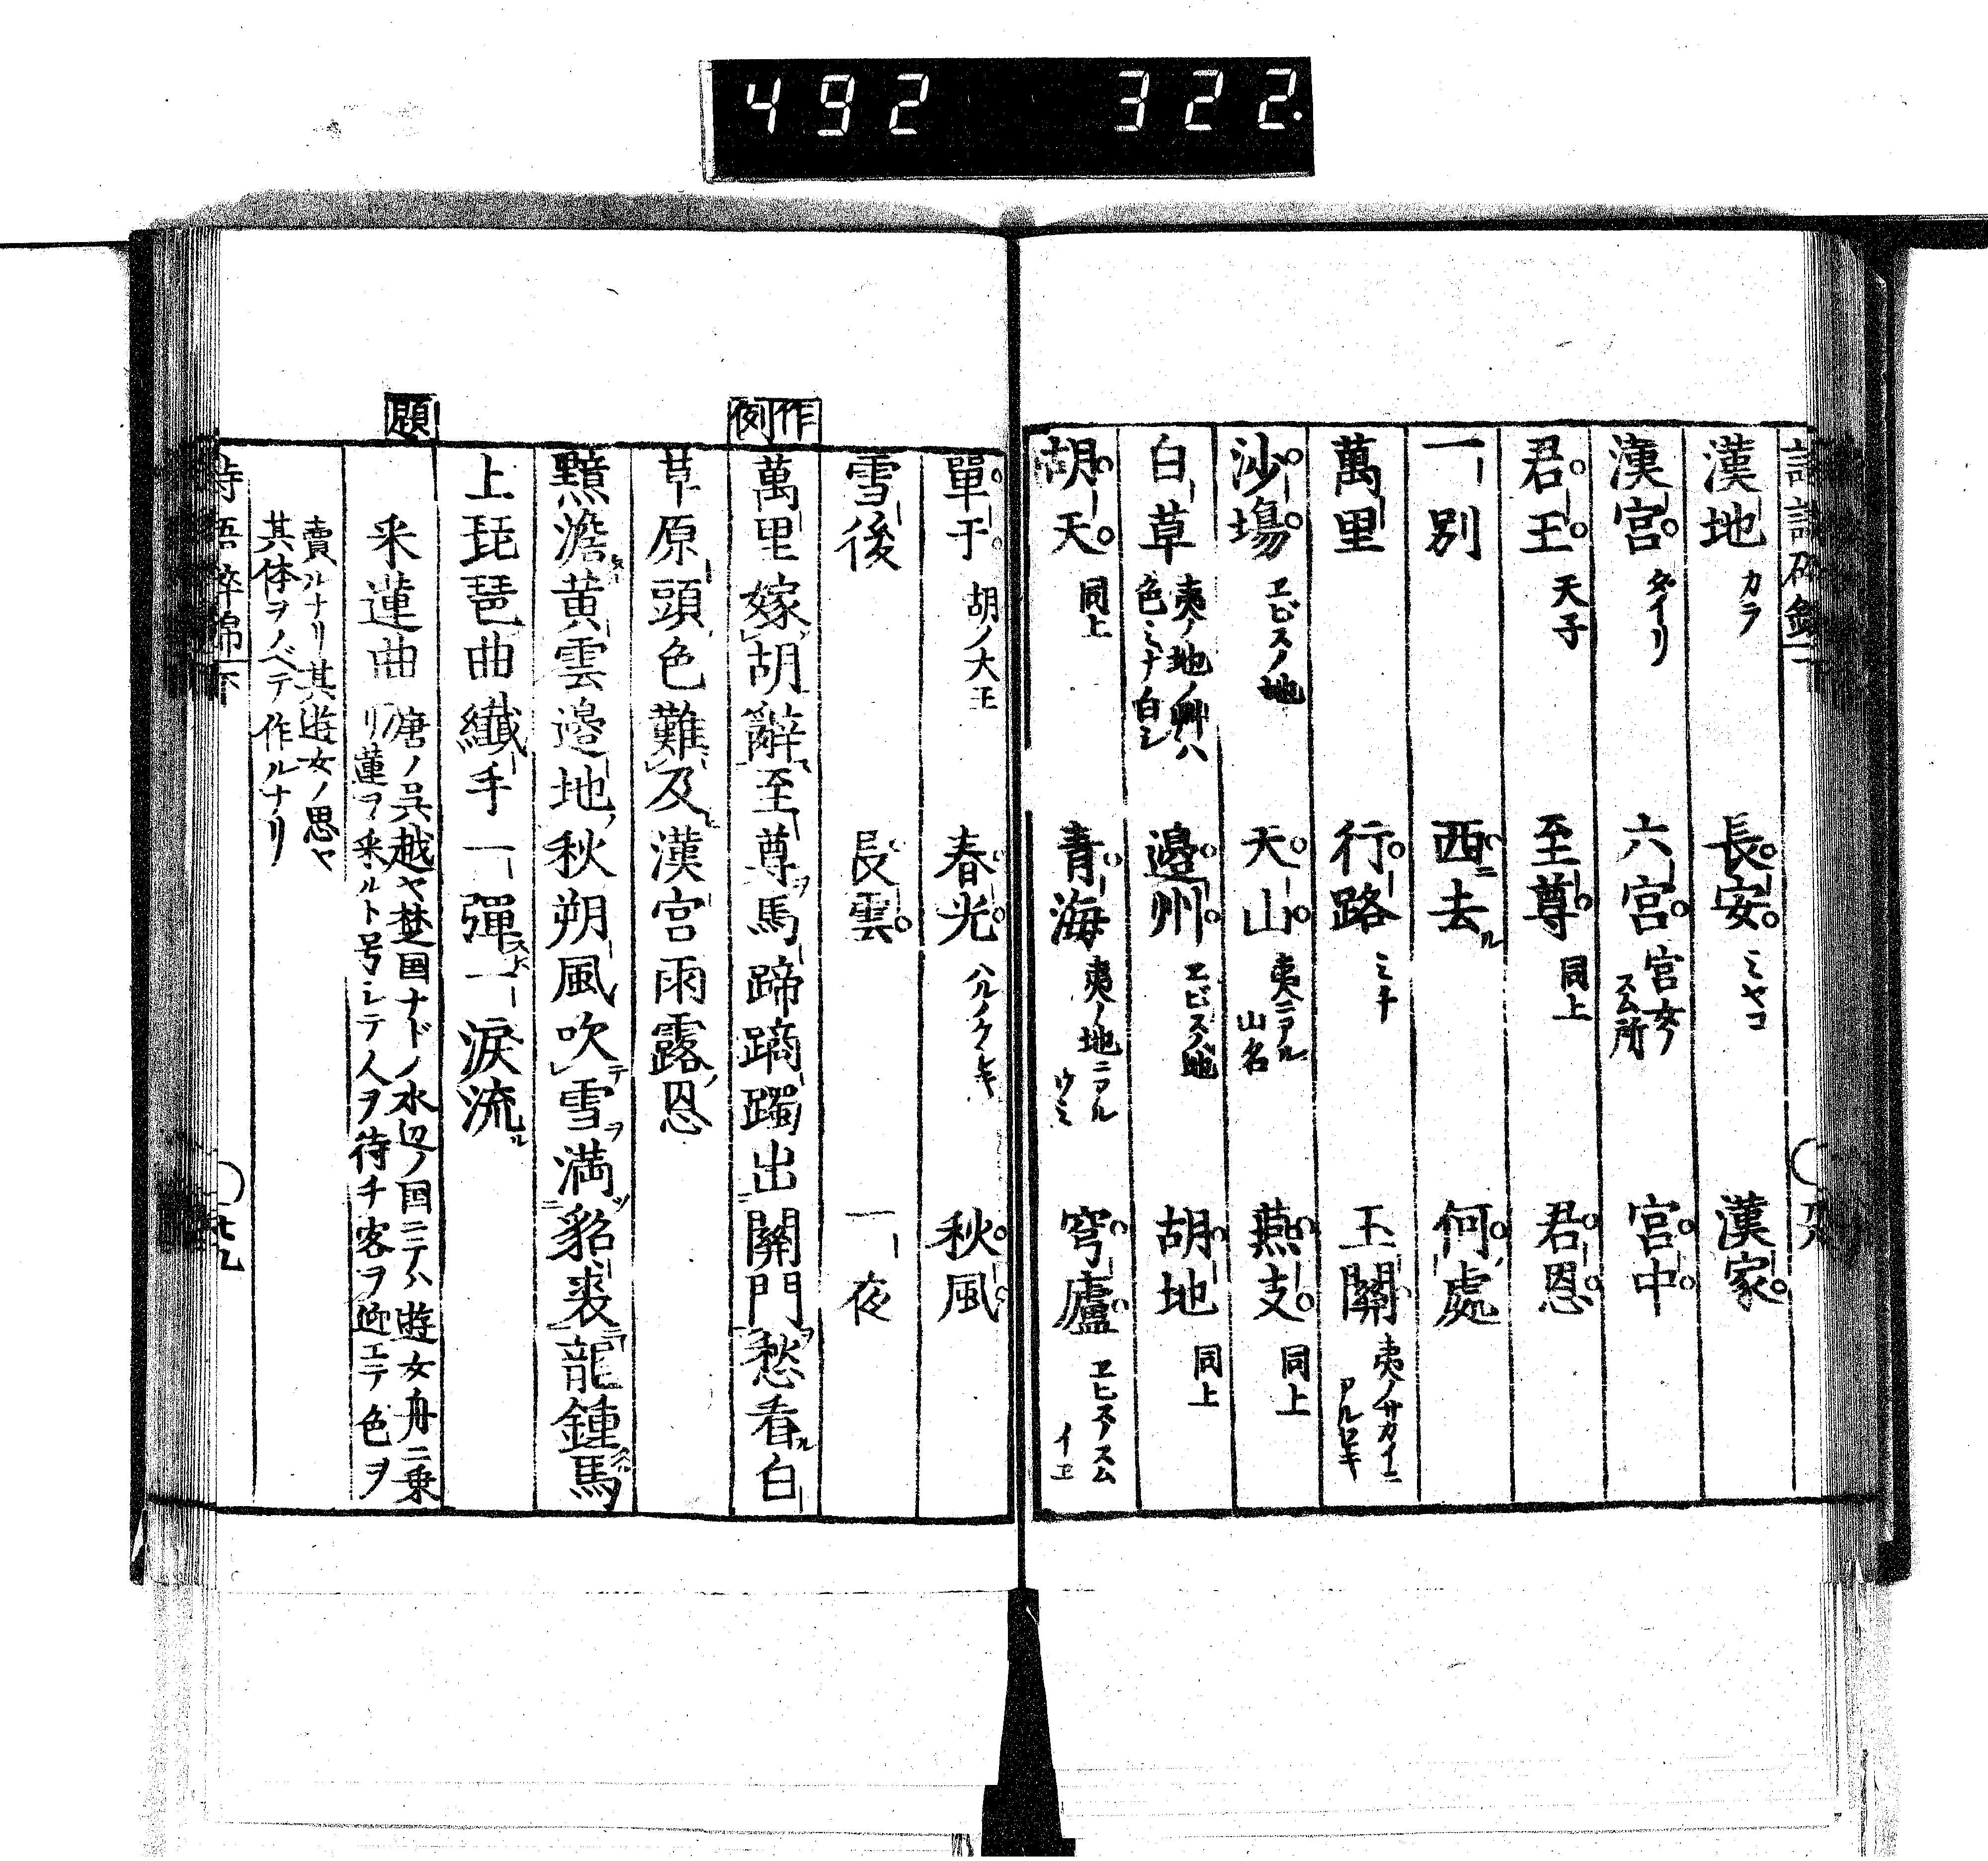 492 322.
漢地 カラ 長安 ミヤコ 漢家
漢宮 ダイリ 六宮 宮女ノスム所 宮中
君王 天子 至尊 同上 君恩
一別 西ニ去ル 何處
萬里 行路 ミチ 玉關 夷ノサカイニアルセキ
沙塲 ヱビスノ地 天山 夷ニアル山名 燕支 同上
白草 夷ノ地ノ艸ハ色ミナ白シ 邉州 ヱビスノ地 胡地 同上
胡天 同上 青海 夷ノ地ニアルウミ 穹廬 ヱビスノスムイエ
單于 胡ノ大王 春光 ハルノケシキ 秋風
雪後 長雲 一夜
作例
萬里嫁胡辭至尊馬蹄躑躅出關門愁看白
草原頭色難及漢宮雨露恩
黯澹黄雲邉地秋朔風吹雪満貂裘龍鍾馬
上琵琶曲纎手一彈一淚流
題
采蓮曲 唐ノ呉越ヤ楚国ナドノ水辺ノ国ニテハ遊女舟ニ乗
リ蓮ヲ采ルト号シテ人ヲ待チ客ヲ迎エテ色ヲ
賣ルナリ其遊女ノ思ヤ
其体ヲノベテ作ルナリ